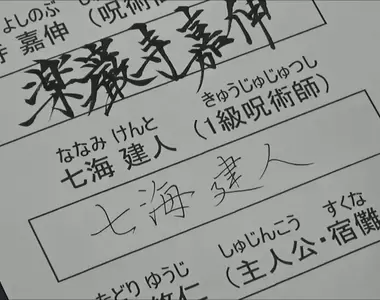 よしのぶ
寺 嘉伸 (呪術
楽巌寺嘉伸
ななみ けんと きゅうじゅじゅつし
七海 建人 (1級呪術師)
七海 建人
たどり ゆうじ しゅじんこう すくな
悠仁 (主人公・宿儺